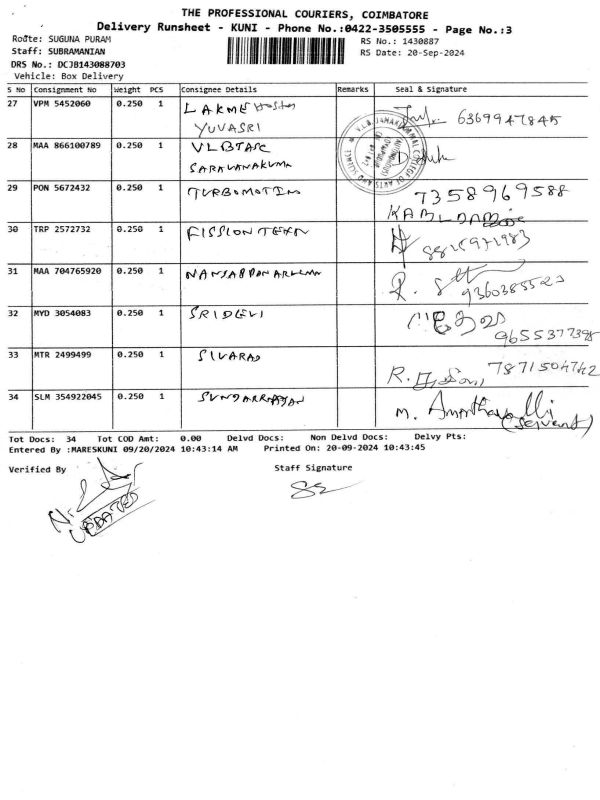 THE PROFESSIONAL COURIERS, COIMBATORE
Delivery Runsheet - KUNI - Phone No.:0422-3505555 - Page No.:3
Route: SUGUNA PURAM RS No.: 1430887
Staff: SUBRAMANIAN RS Date: 20-Sep-2024
DRS No.: DCJB143088703
Vehicle: Box Delivery
S No Consignment No Weight PCS Consignee Details Remarks Seal & Signature
27 VPM 5452060 0.250 1 LAKME 6369947845
YUVASRI
28 MAA 866100789 0.250 1 VLBTASC
SARAVANAKUMA
29 PON 5672432 0.250 1 TURBOMOTION 7358969588
30 TRP 2572732 0.250 1 FISSION
31 MAA 704765920 0.250 1 9360385520
32 MYD 3054083 0.250 1 SRIDEVI
9655377398
33 MTR 2499499 0.250 1 SIVARAJ R. 7871504742
34 SLM 354922045 0.250 1 SUNDARRAJAN M. Ananthavalli
(servant)
Tot Docs: 34 Tot COD Amt: 0.00 Delvd Docs: Non Delvd Docs: Delvy Pts:
Entered By :MARESKUNI 09/20/2024 10:43:14 AM Printed On: 20-09-2024 10:43:45
Verified By Staff Signature
UPDATED